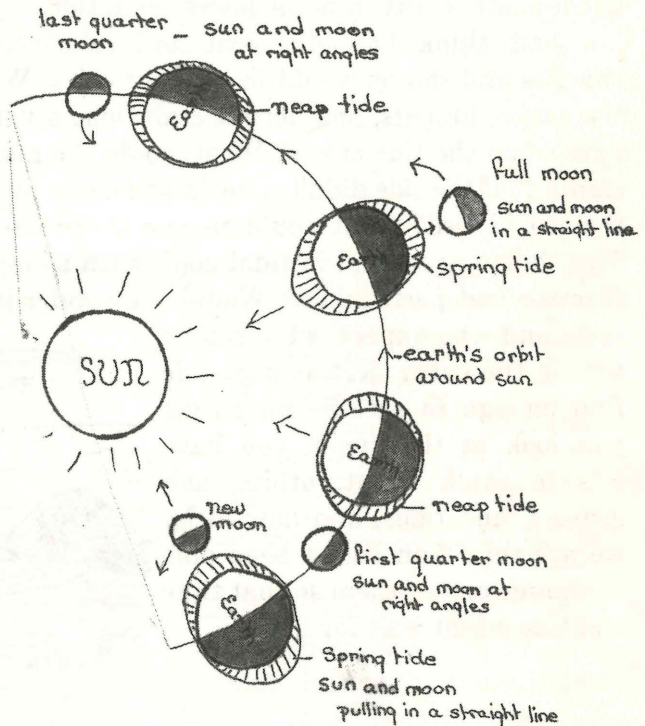 last quarter
moon
sun and moon
at right angles
Earth
neap tide
full moon
sun and moon
in a straight line
Earth
spring tide
SUN
earth's orbit
around sun
Earth
neap tide
new
moon
first quarter moon
sun and moon at
right angles
Earth
Spring tide
sun and moon
pulling in a straight line